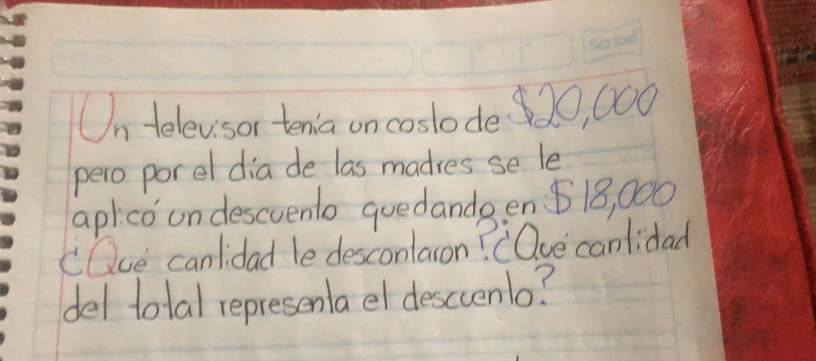 Scribe
Un televisor tenía un costo de $20,000
pero por el día de las madres se le
aplicó un descuento quedando en $18,000
¿Qué cantidad le descontaron? ¿Qué cantidad
del total representa el descuento?